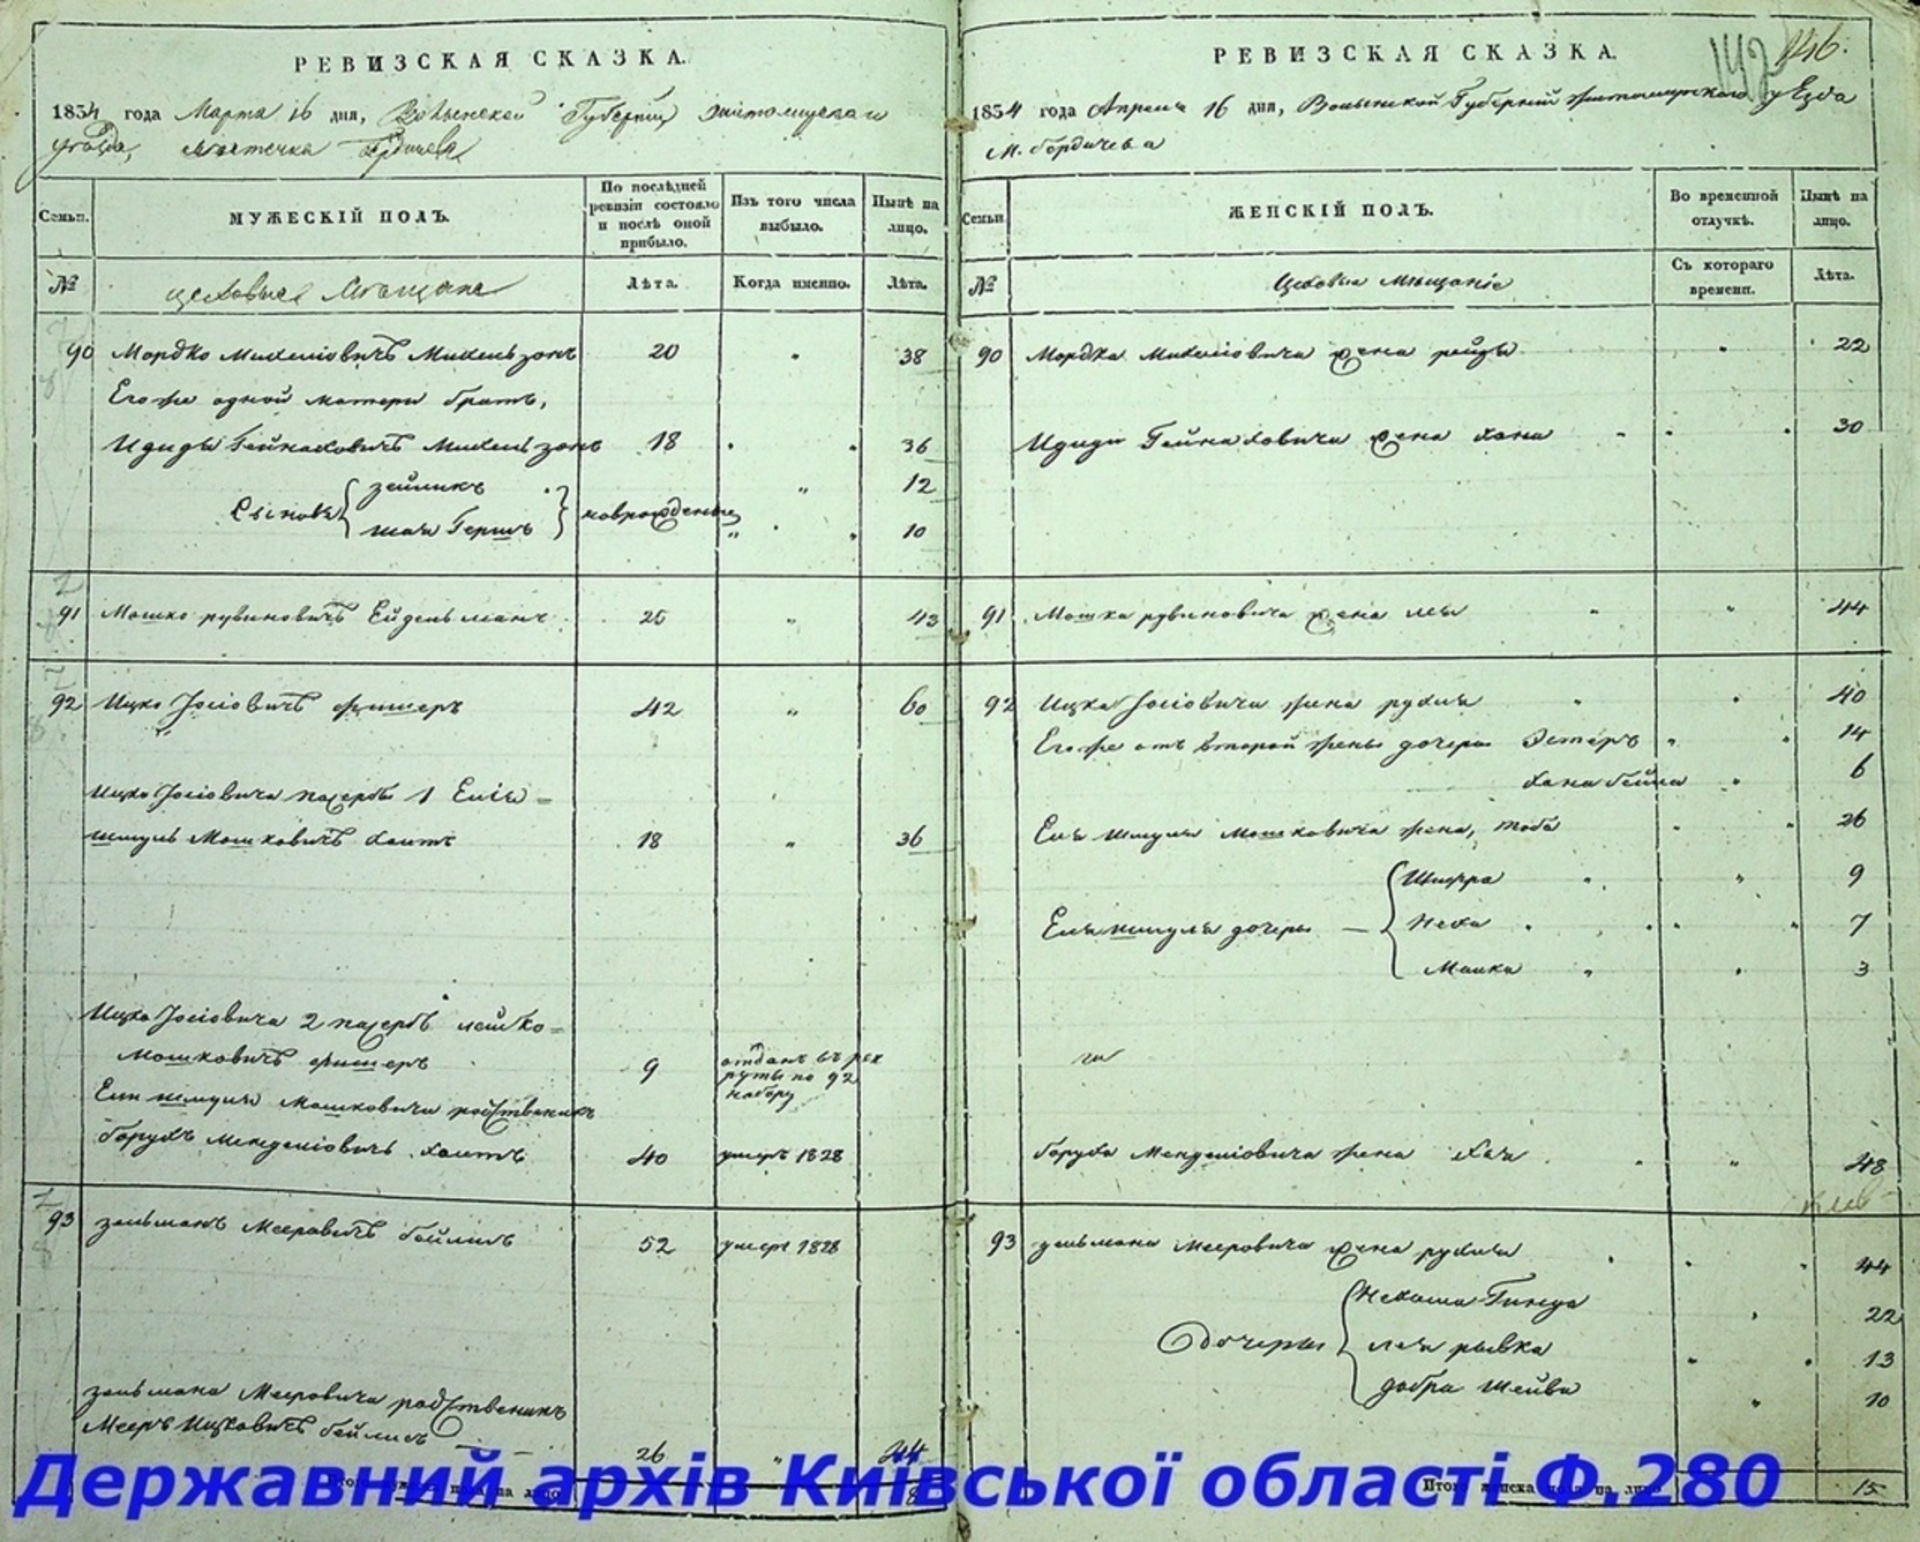 РЕВИЗСКАЯ СКАЗКА.
1834 года Марта 16 дня, Волынской Губерніи Житомирскаго
уезда, Местечка Бердичева
Семьи. МУЖЕСКІЙ ПОЛЪ. По послѣдней ревизіи состояло и послѣ оной прибыло. Изъ того числа выбыло. Нынѣ на лицо.
№ цеховые Мещане Лѣта. Когда именно. Лѣта.
90 Мордко Михелiовичъ Михельзонъ 20 " 38
Его же одной матери братъ,
Идиды Гейнаховичъ Михельзонъ 18 " " 36
Сыновья зейликъ " 12
шая Гершъ новрожденны " " 10
91 Мошко рувиновичъ Ейдельманъ 25 " 43
92 Ицко Іосіовичъ фишеръ 42 " 60
Ицка Іосіовича пасербъ 1 Еліа=
шмуль Мошковичъ Хаитъ 18 " 36
Ицка Іосіовича 2 пасербъ лейбко=
Мошковичъ фишеръ 9 отданъ въ рек
руты по 92
набору
Ели шмуля Мошковича родственикъ
борухъ Менделіовичъ Хаитъ 40 умеръ 1828
93 зельманъ Мееровичъ бейлисъ 52 умеръ 1828
зельмана Мееровича родственикъ
Мееръ Ицковичъ бейлисъ 26 " 44
8
РЕВИЗСКАЯ СКАЗКА.
142 146.
1834 года Апреля 16 дня, Волынской Губерніи Житомирского уезда
м. бердичева
Семьи. ЖЕНСКІЙ ПОЛЪ. Во временной отлучкѣ. Нынѣ на лицо.
№ Цеховыя Мещаніе Съ котораго времени. Лѣта.
90 Мордка Михеліовича жена рейзы " 22
Идиди Гейнаховича жена хана " " " 30
91 Мошка рувиновича жена леи " " 44
92 Ицка Іосіовича жена рухля " " 40
Его же отъ второй жены дочери Эстеръ " " 14
хана бейла " 6
Елъ шмуля Мошковича жена, тоба " " 26
Шифра " " 9
Елъ шмуля дочери — Неха " " " 7
Малка " " 3
боруха Менделіовича жена хая " " 48
93 зельмана Мееровича жена рухля " " " 44
Дочери Нехама Гинда " 22
леа рывка " " 13
добра шейва " 10
Итого женска пола на лицо 15
Державний архів Київської області Ф.280